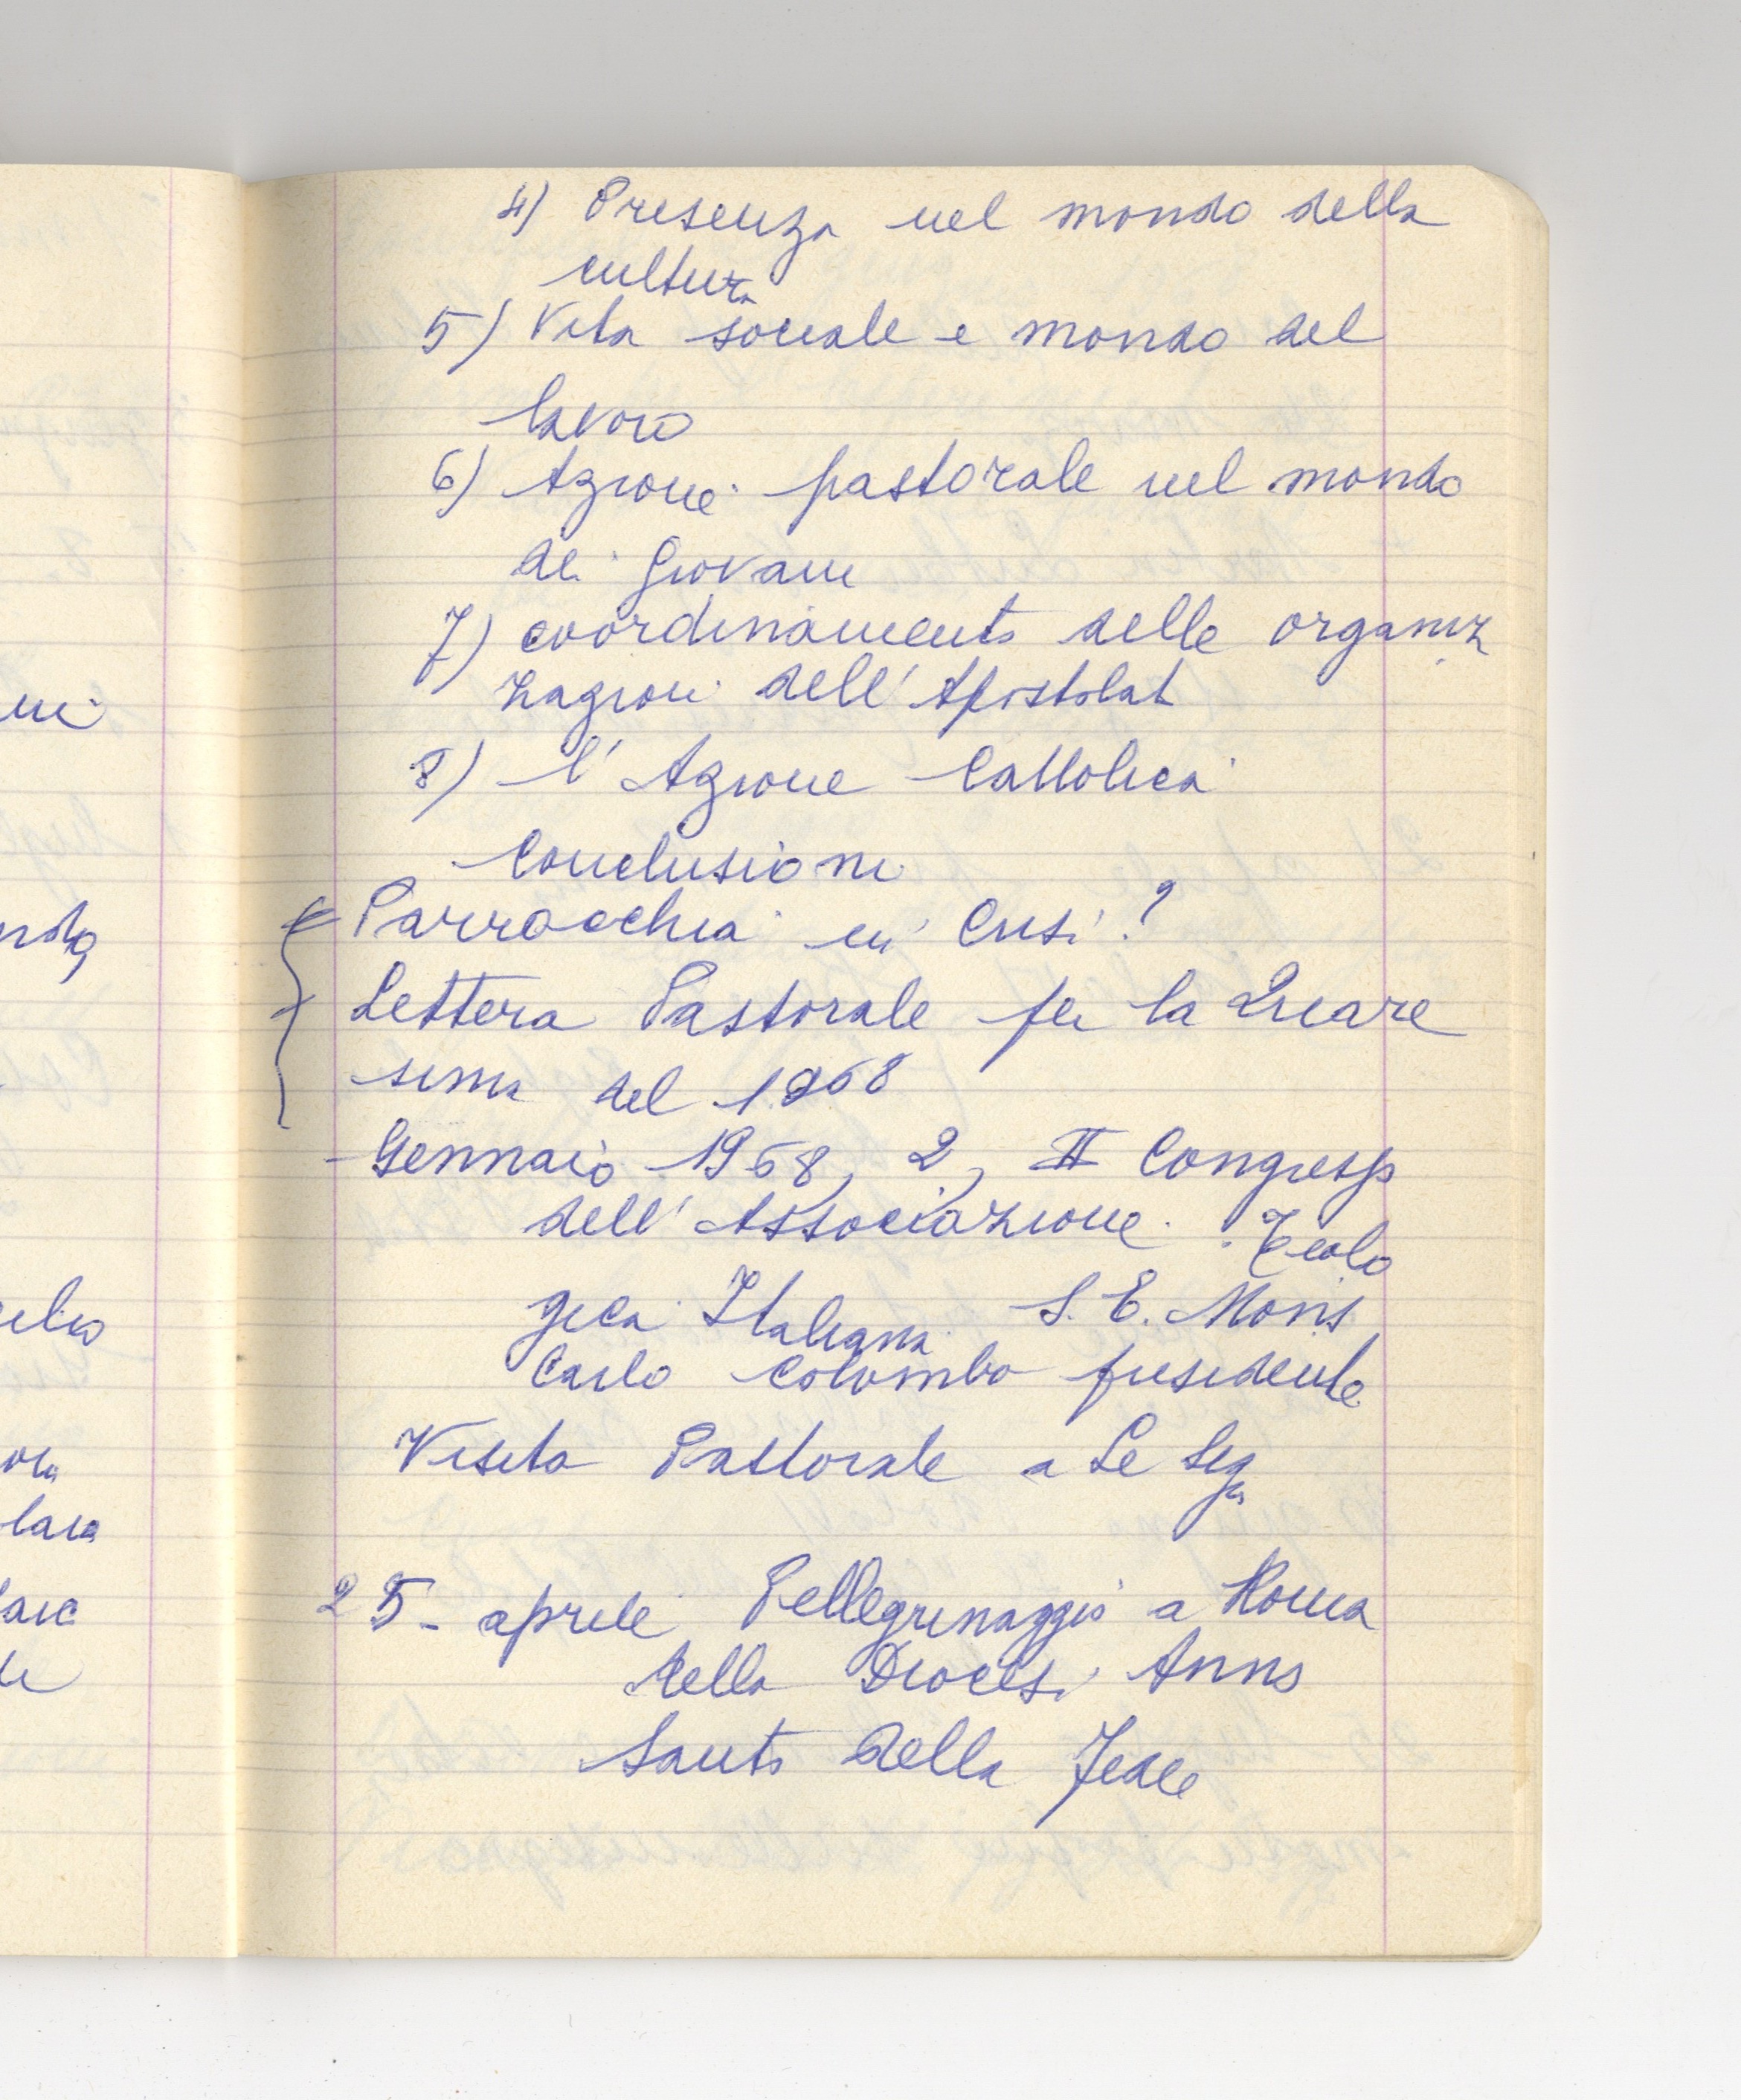 4) Presenza nel mondo della
cultura
5) Vita sociale e mondo del
lavoro
6) Azione pastorale nel mondo
dei Giovani
7) coordinamento delle organiz
zazioni dell'Apostolat
8) l'Azione Cattolica
Conclusioni
Parrocchia in Crisi?
Lettera Pastorale per la Quare
sima del 1968
Gennaio 1968, 2, II Congresso
dell'Associazione Teolo
gica Italiana S. E. Mons
Carlo Colombo presidente
Visita Pastorale a Le
25 - aprile Pellegrinaggio a Roma
della Diocesi Anno
Santo della Fede